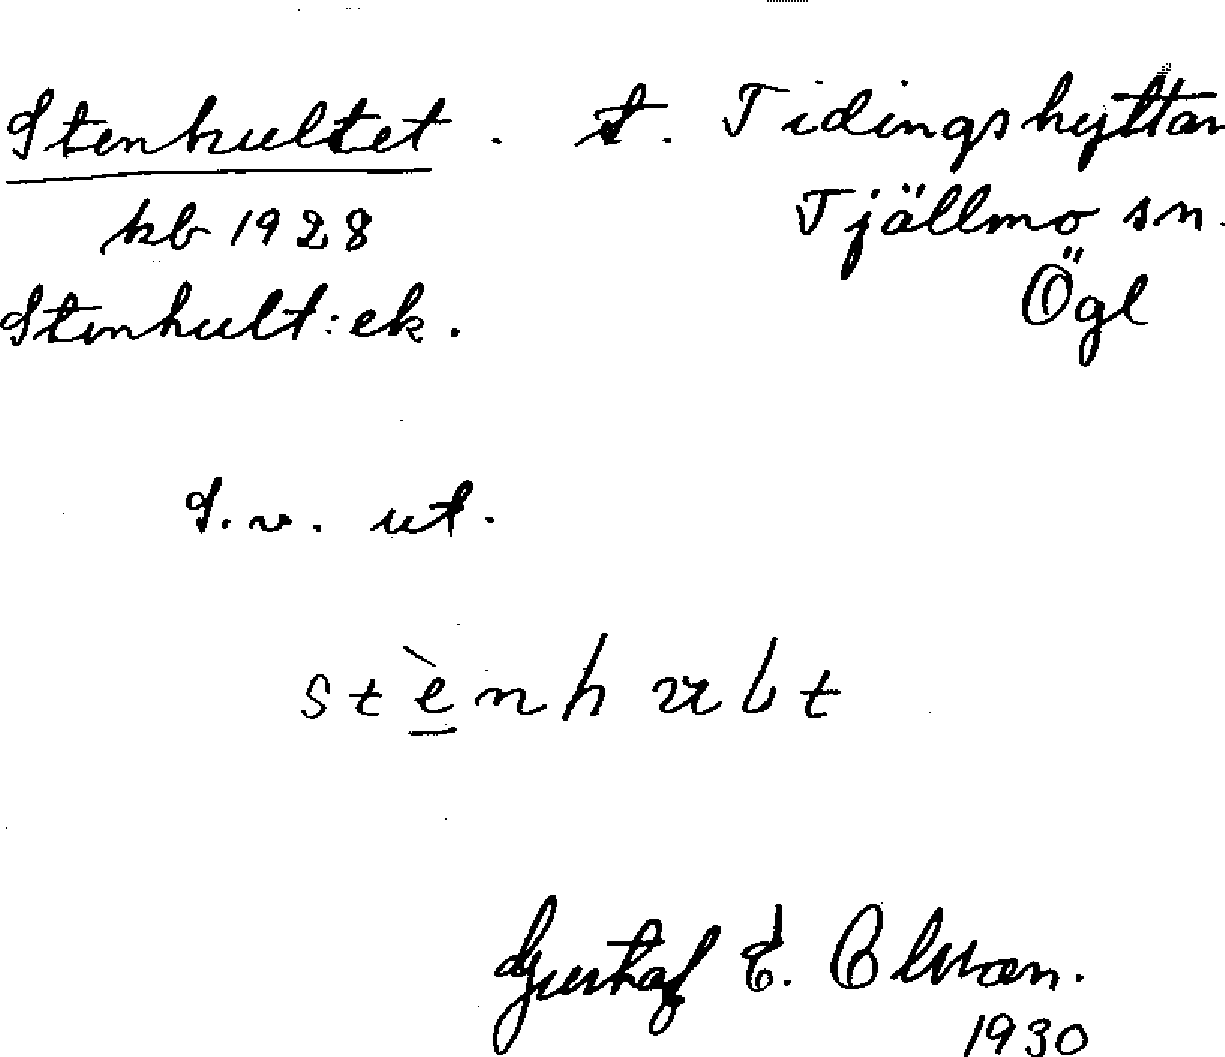 Stenhultet. t. Tidingshyttan
kb 1928 Tjällmo sn.
Stenhult: ek. Ögl
S.v. ut.
stènhult
Gustaf E. Olsson.
1930